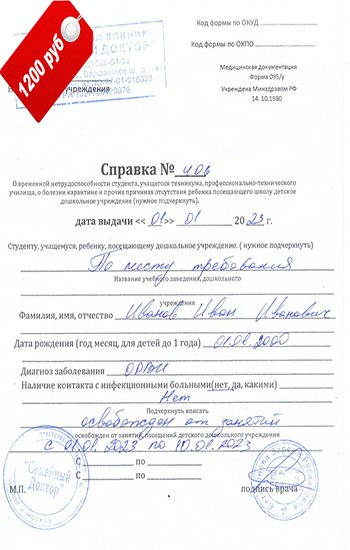 1200 руб
Код формы по ОКУД
Код формы по ОКПО
Медицинская документация
Форма 095/у
учреждения
Учреждена Минздравом РФ
14. 10.1980
Справка № 406
О временной нетрудоспособности студента, учащегося техникума, профессионально-технического
училища, о болезни карантине и прочих причинах отсутствия ребенка посещающего школу детское
дошкольное учреждение (нужное подчеркнуть).
дата выдачи << 01>> 01 2023 г.
Студенту, учащемуся, ребенку, посещающему дошкольное учреждение. ( нужное подчеркнуть)
По месту требования
Название учебного заведения, дошкольного
учреждения
Фамилия, имя, отчество Иванов Иван Иванович
Дата рождения (год месяц, для детей до 1 года) 01.01.2000
Диагноз заболевания ОРВИ
Наличие контакта с инфекционными больными(нет, да, какими)
Нет
Подчеркнуть вписать
освобожден от занятий
освобожден от занятий, посещений детского дошкольного учреждения
с 01.01.2023 по 10.01.2023
С по
С по
М.П.
"Семейный
Доктор"
подпись врача